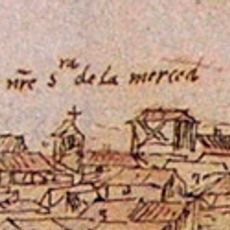 nr̃e Sra de la merced